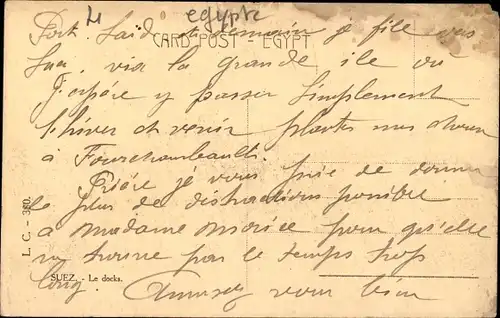 egypte
Port Saïd et demain je file vers
CARD POST - EGYPT
Suez, via la grande île où
J'espère y passer simplement
l'hiver et venir planter mes choux
à Fourchambault.
Prière je vous prie de donner
le plus de distractions possible
à Madame Morice pour qu'elle
ne trouve pas le temps trop
long. Amusez vous bien
L. C. - 380.
SUEZ. - Le docks.